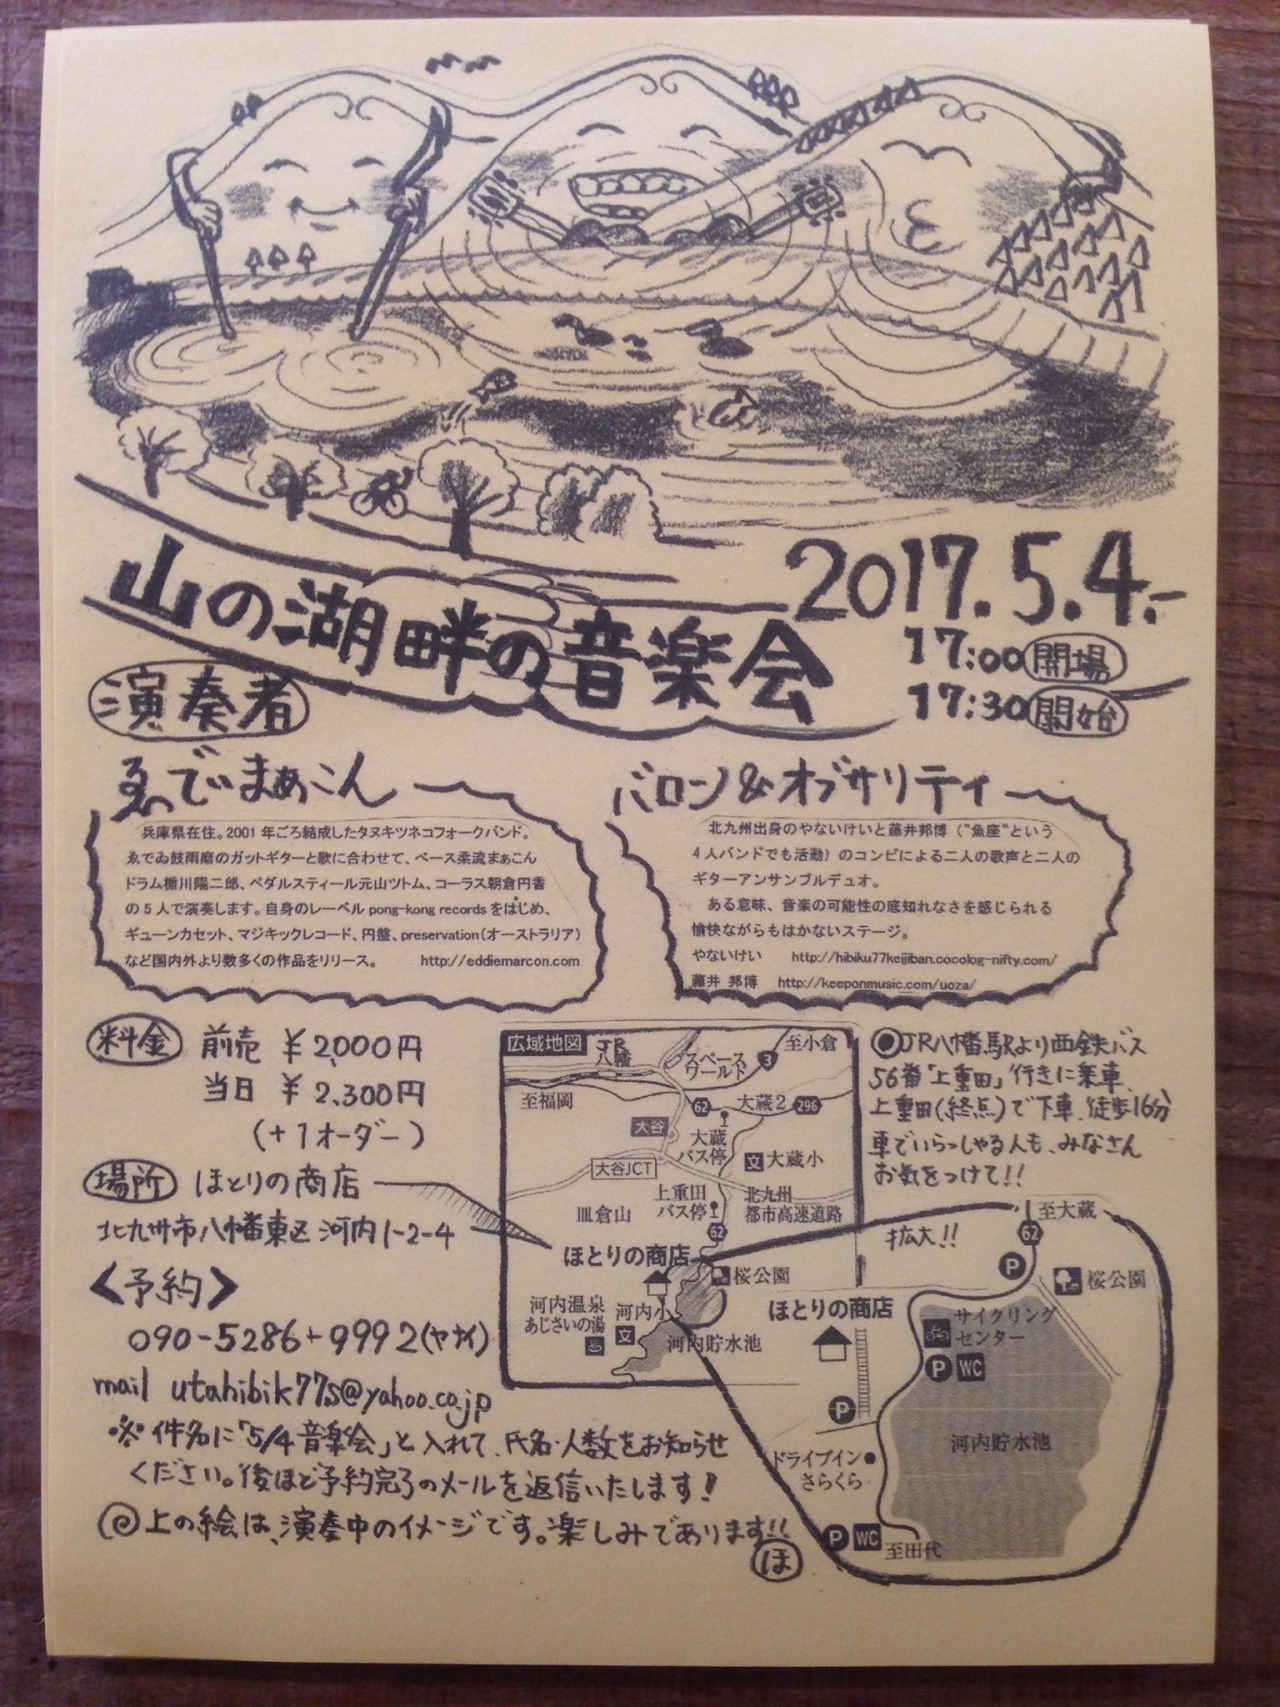 山の湖畔の音楽会
2017.5.4.-
17:00 開場
17:30 開始
演奏者
ゑでぃまぁこん
兵庫県在住。2001年ごろ結成したタヌキツネコフォークバンド。
ゑでゐ鼓雨磨のガットギターと歌に合わせて、ベース柔流まぁこん
ドラム楯川陽二郎、ペダルスティール元山ツトム、コーラス朝倉円香
の5人で演奏します。自身のレーベルpong-kong recordsをはじめ、
ギューンカセット、マジキックレコード、円盤、preservation(オーストラリア)
など国内外より数多くの作品をリリース。 http://eddiemarcon.com
バロン&オブサリティ
北九州出身のやないけいと藤井邦博("魚座"という
4人バンドでも活動)のコンビによる二人の歌声と二人の
ギターアンサンブルデュオ。
ある意味、音楽の可能性の底知れなさを感じられる
愉快ながらもはかないステージ。
やないけい http://hibiku77keijiban.cocolog-nifty.com/
藤井 邦博 http://keeponmusic.com/uoza/
料金 前売 ¥2,000円
当日 ¥2,300円
(+1オーダー)
場所 ほとりの商店
北九州市八幡東区河内1-2-4
<予約>
090-5286-9992(ヤナイ)
mail utahibik77s@yahoo.co.jp
※件名に「5/4音楽会」と入れて、氏名・人数をお知らせ
ください。後ほど予約完了のメールを返信いたします!
@上の絵は、演奏中のイメージです。楽しみであります!!
ほ
広域地図
JR八幡
スペースワールド
3
至小倉
至福岡
62
大蔵2
296
大谷
大蔵バス停
文 大蔵小
大谷JCT
上重田バス停
北九州都市高速道路
皿倉山
62
ほとりの商店
桜公園
河内温泉
あじさいの湯
河内小
文
河内貯水池
◎JR八幡駅より西鉄バス
56番「上重田」行きに乗車、
上重田(終点)で下車、徒歩16分
車でいらっしゃる人も、みなさん
お気をつけて!!
拡大!!
至大蔵
62
P
桜公園
ほとりの商店
サイクリングセンター
P WC
P
河内貯水池
ドライブイン
さらくら
P WC
至田代